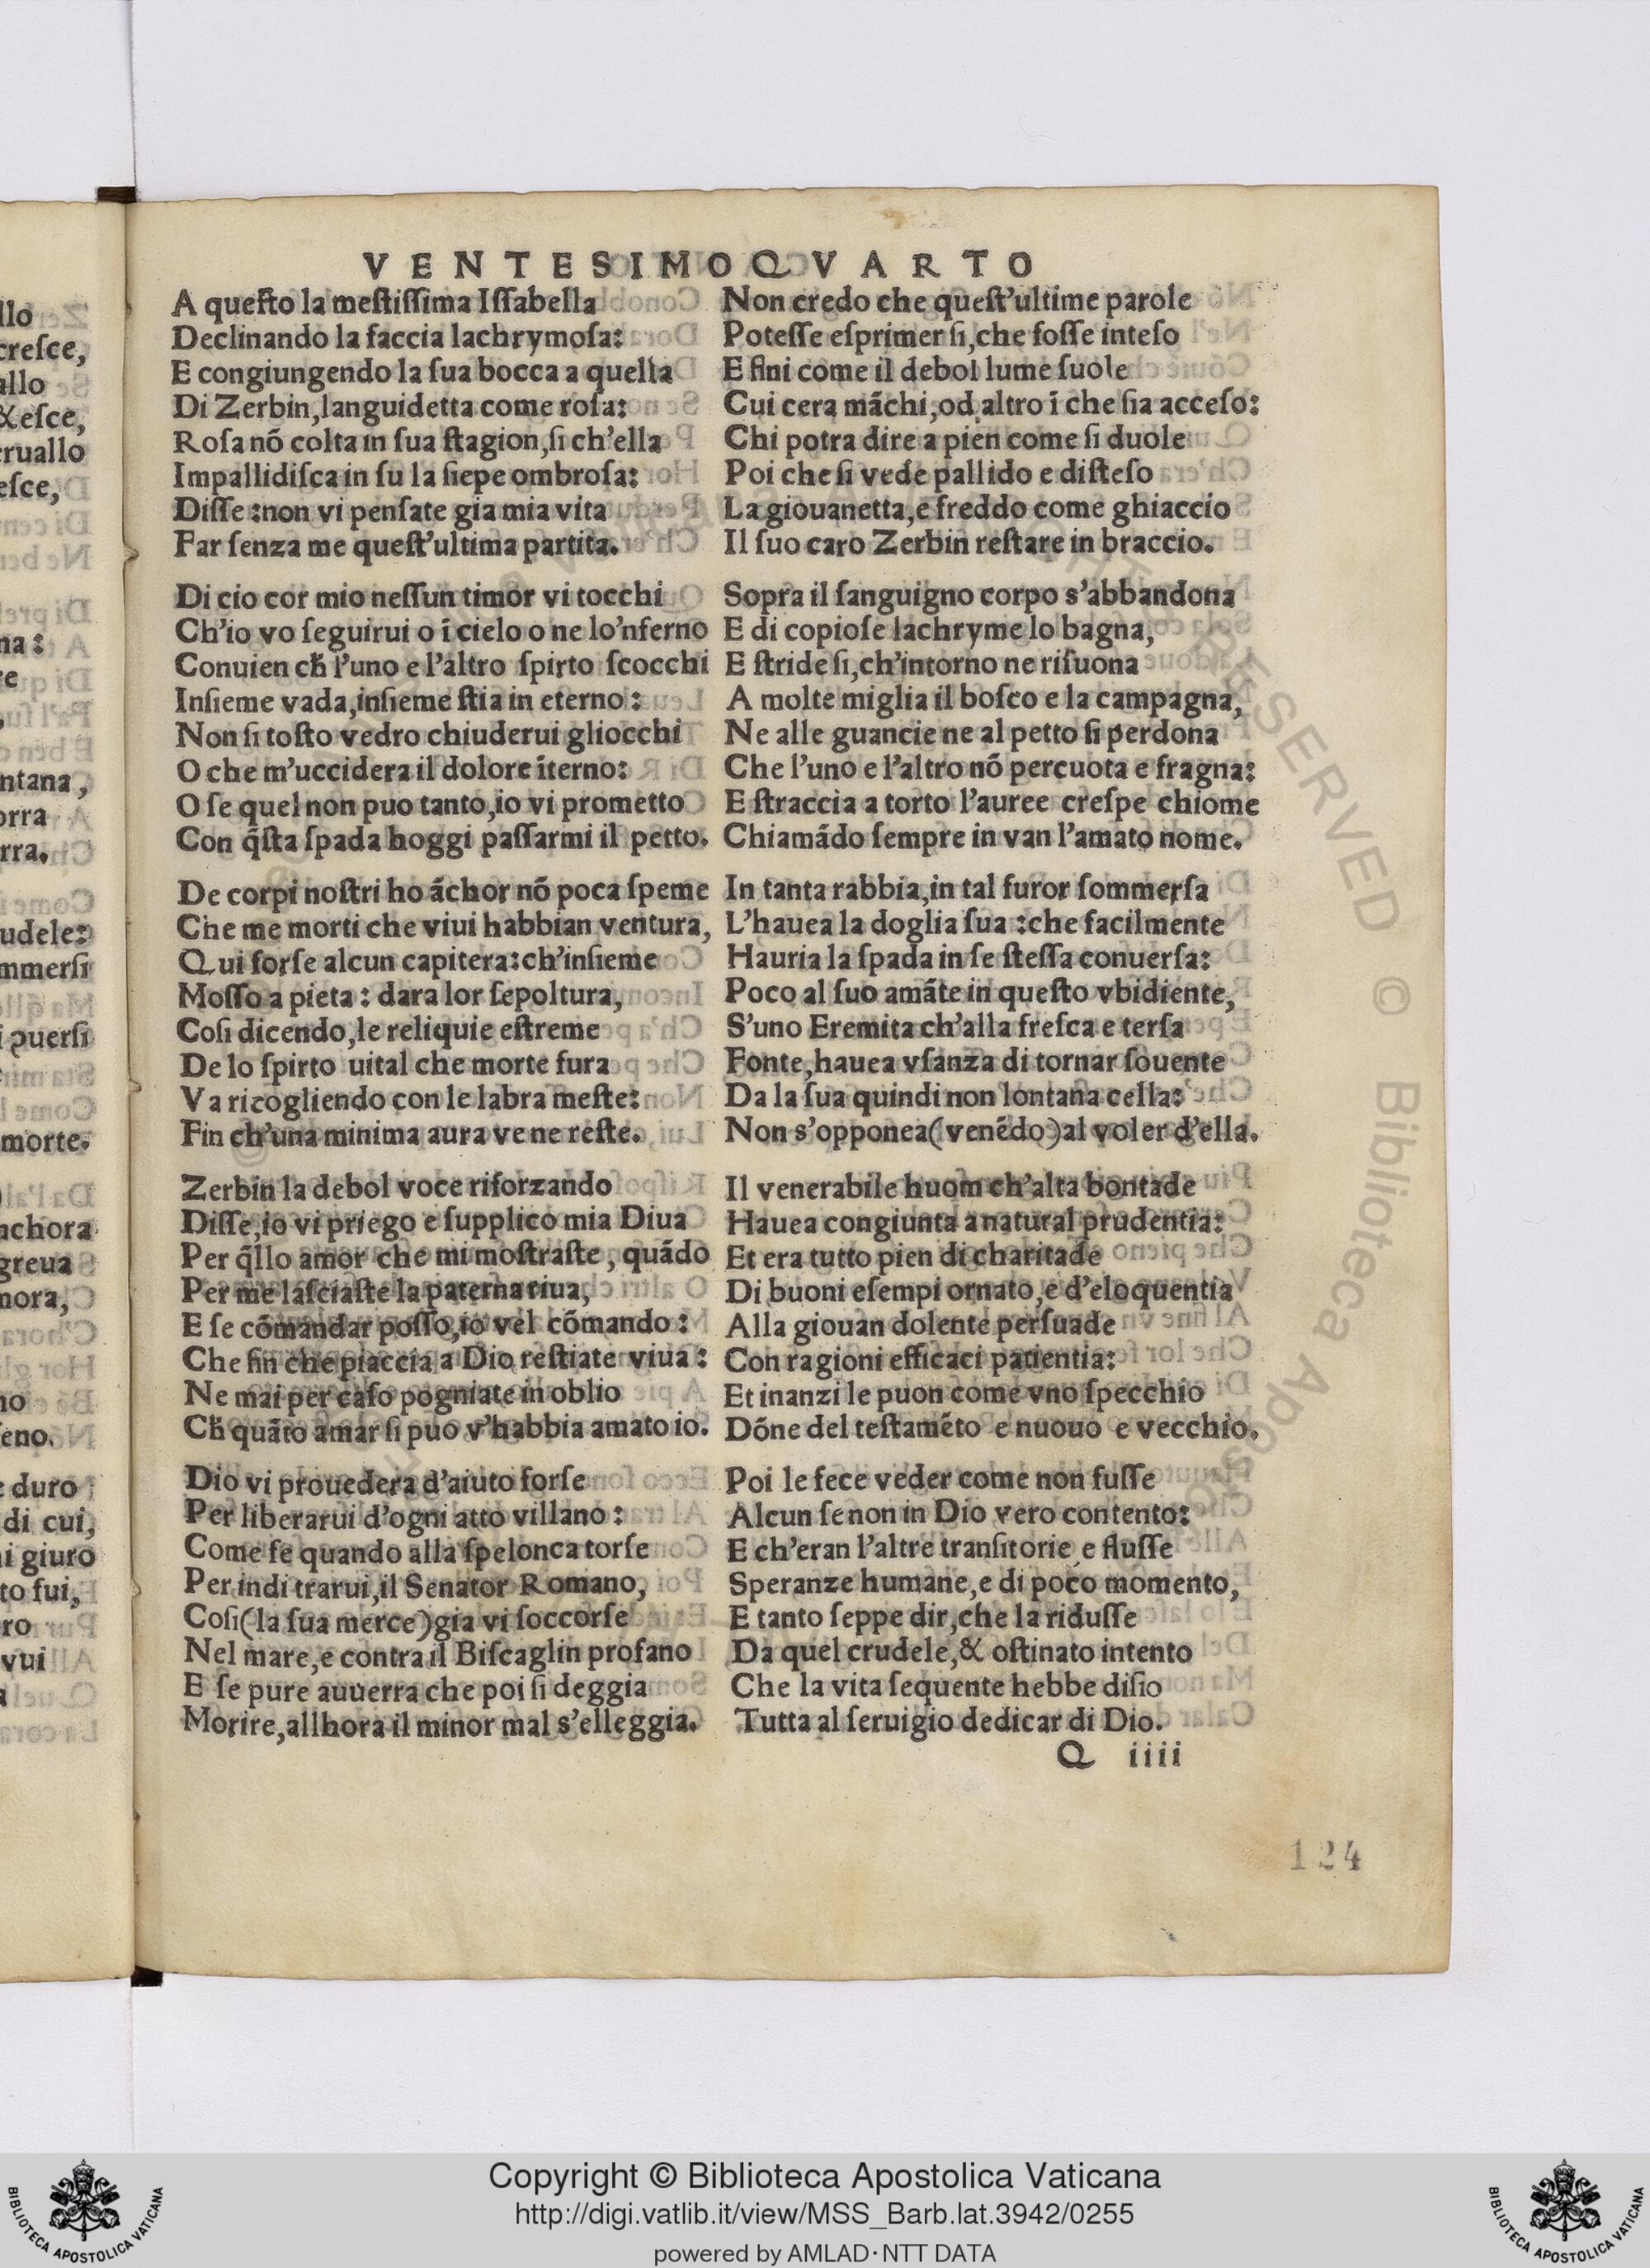 VENTESIMOQVARTO
A queſto la meſtiſſima Iſſabella
Declinando la faccia lachrymoſa:
E congiungendo la ſua bocca a quella
Di Zerbin,languidetta come roſa:
Roſa nõ colta in ſua ſtagion,ſi ch'ella
Impallidiſca in ſu la ſiepe ombroſa:
Diſſe:non vi penſate gia mia vita
Far ſenza me queſt'ultima partita.
Di cio cor mio neſſun timor vi tocchi
Ch'io vo ſeguirui o ĩ cielo o ne lo'nferno
Conuien cħ l'uno e l'altro ſpirto ſcocchi
Inſieme vada,inſieme ſtia in eterno:
Non ſi toſto vedro chiuderui gliocchi
O che m'uccidera il dolore ĩterno:
O ſe quel non puo tanto,io vi prometto
Con q̃ſta ſpada hoggi paſſarmi il petto.
De corpi noſtri ho ãchor nõ poca ſpeme
Che me morti che viui habbian ventura,
Qui forſe alcun capitera:ch'inſieme
Moſſo a pieta: dara lor ſepoltura,
Coſi dicendo,le reliquie eſtreme
De lo ſpirto uital che morte fura
Va ricogliendo con le labra meſte:
Fin ch'una minima aura ve ne reſte.
Zerbin la debol voce riforzando
Diſſe,io vi priego e ſupplico mia Diua
Per q̃llo amor che mi moſtraſte, quãdo
Per me laſciaſte la paterna riua,
E ſe cõmandar poſſo,io vel cõmando:
Che fin che piaccia a Dio reſtiate viua:
Ne mai per caſo pogniate in oblio
Cħ quãto amar ſi puo v'habbia amato io.
Dio vi prouedera d'aiuto forſe
Per liberarui d'ogni atto villano:
Come fe quando alla ſpelonca torſe
Per indi trarui,il Senator Romano,
Coſi(la ſua merce)gia vi ſoccorſe
Nel mare,e contra il Biſcaglin profano
E ſe pure auuerra che poi ſi deggia
Morire,allhora il minor mal s'elleggia.
Non credo che queſt'ultime parole
Poteſſe eſprimer ſi,che foſſe inteſo
E fini come il debol lume ſuole
Cui cera mãchi,od altro ĩ che ſia acceſo:
Chi potra dire a pien come ſi duole
Poi che ſi vede pallido e diſteſo
La giouanetta,e freddo come ghiaccio
Il ſuo caro Zerbin reſtare in braccio.
Sopra il ſanguigno corpo s'abbandona
E di copioſe lachryme lo bagna,
E ſtride ſi,ch'intorno ne riſuona
A molte miglia il boſco e la campagna,
Ne alle guancie ne al petto ſi perdona
Che l'uno e l'altro nõ percuota e fragna:
E ſtraccia a torto l'auree creſpe chiome
Chiamãdo ſempre in van l'amato nome.
In tanta rabbia,in tal furor ſommerſa
L'hauea la doglia ſua:che facilmente
Hauria la ſpada in ſe ſteſſa conuerſa:
Poco al ſuo amãte in queſto vbidiente,
S'uno Eremita ch'alla freſca e terſa
Fonte,hauea vſanza di tornar ſouente
Da la ſua quindi non lontana cella:
Non s'opponea(venẽdo)al voler d'ella.
Il venerabile huom ch'alta bontade
Hauea congiunta a natural prudentia:
Et era tutto pien di charitade
Di buoni eſempi ornato,e d'eloquentia
Alla giouan dolente perſuade
Con ragioni efficaci patientia:
Et inanzi le puon come vno ſpecchio
Dõne del teſtamẽto e nuouo e vecchio.
Poi le fece veder come non fuſſe
Alcun ſe non in Dio vero contento:
E ch'eran l'altre tranſitorie e fluſſe
Speranze humane,e di poco momento,
E tanto ſeppe dir,che la riduſſe
Da quel crudele,& oſtinato intento
Che la vita ſequente hebbe diſio
Tutta al ſeruigio dedicar di Dio.
Q iiii
124
Copyright © Biblioteca Apostolica Vaticana
http://digi.vatlib.it/view/MSS_Barb.lat.3942/0255
powered by AMLAD·NTT DATA
BIBLIOTECA APOSTOLICA VATICANA
BIBLIOTECA APOSTOLICA VATICANA